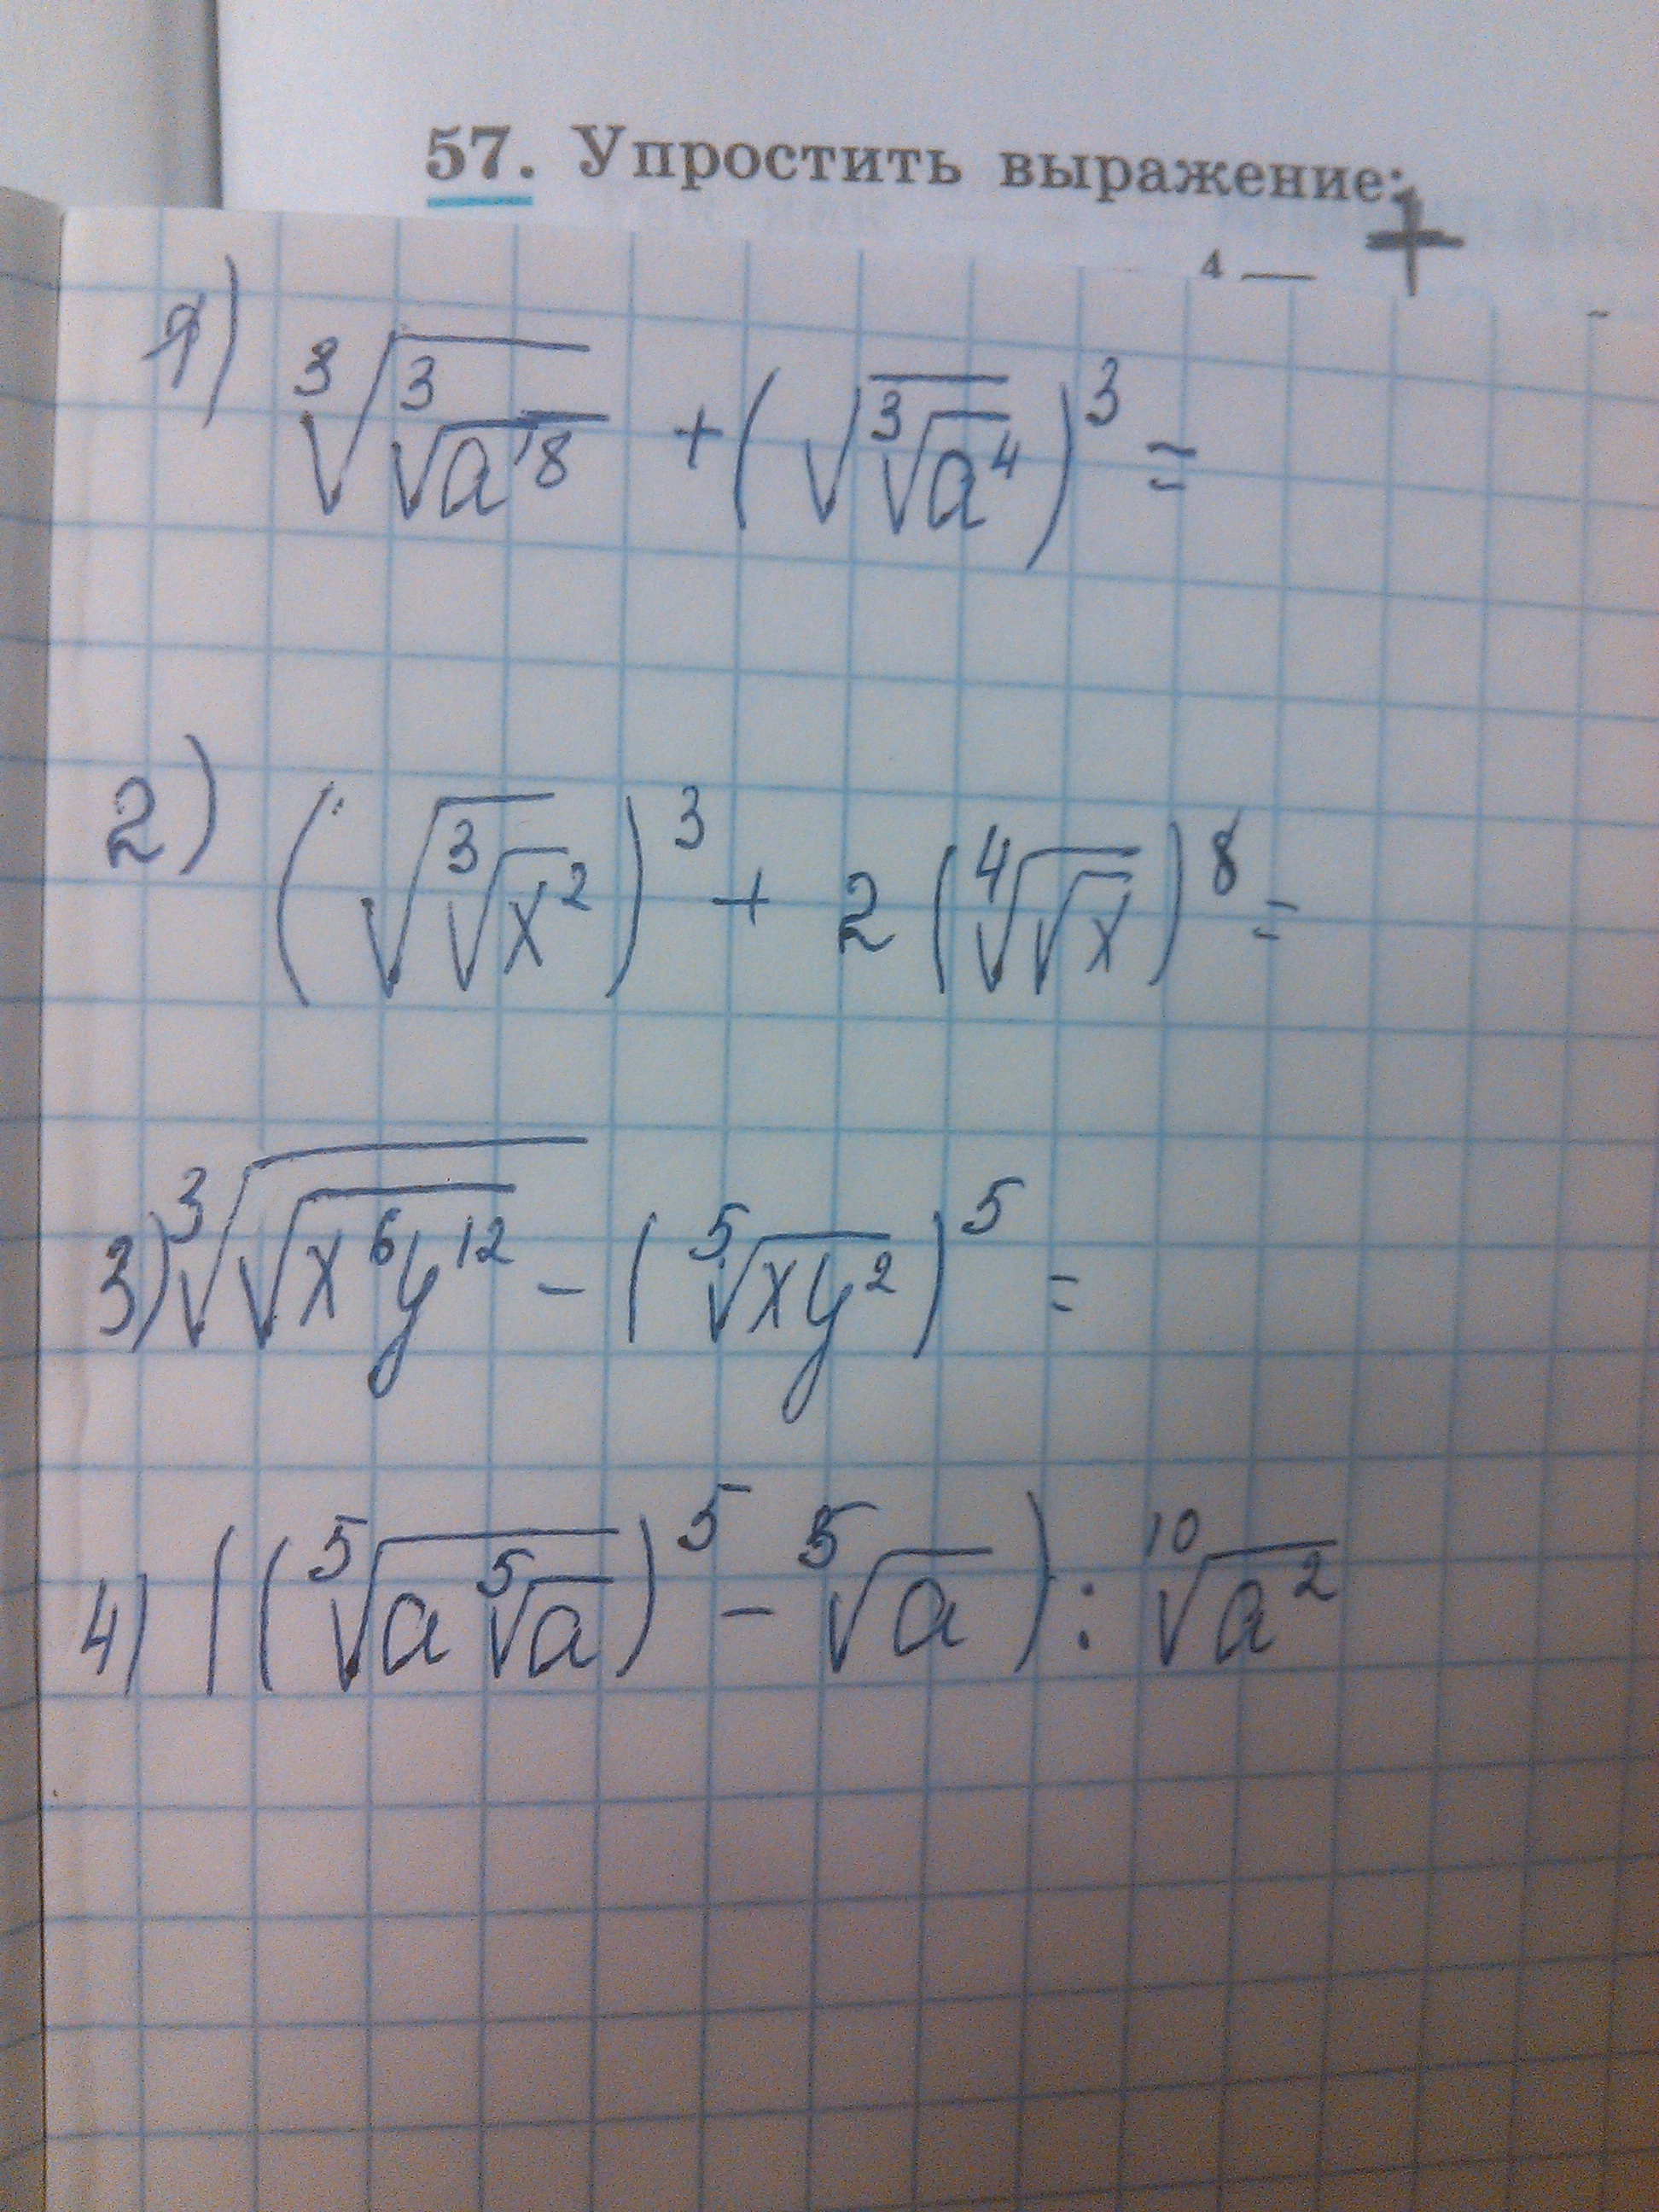 57. Упростить выражение:
4
1) ∛(∛(a¹⁸)) + (√(∛(a⁴)))³ =
2) (√(∛(x²)))³ + 2(∜(√x))⁸ =
3) ∛(√(x⁶y¹²)) - (⁵√(xy²))⁵ =
4) ((⁵√(a ⁵√a))⁵ - ⁵√a) : ¹⁰√(a²)